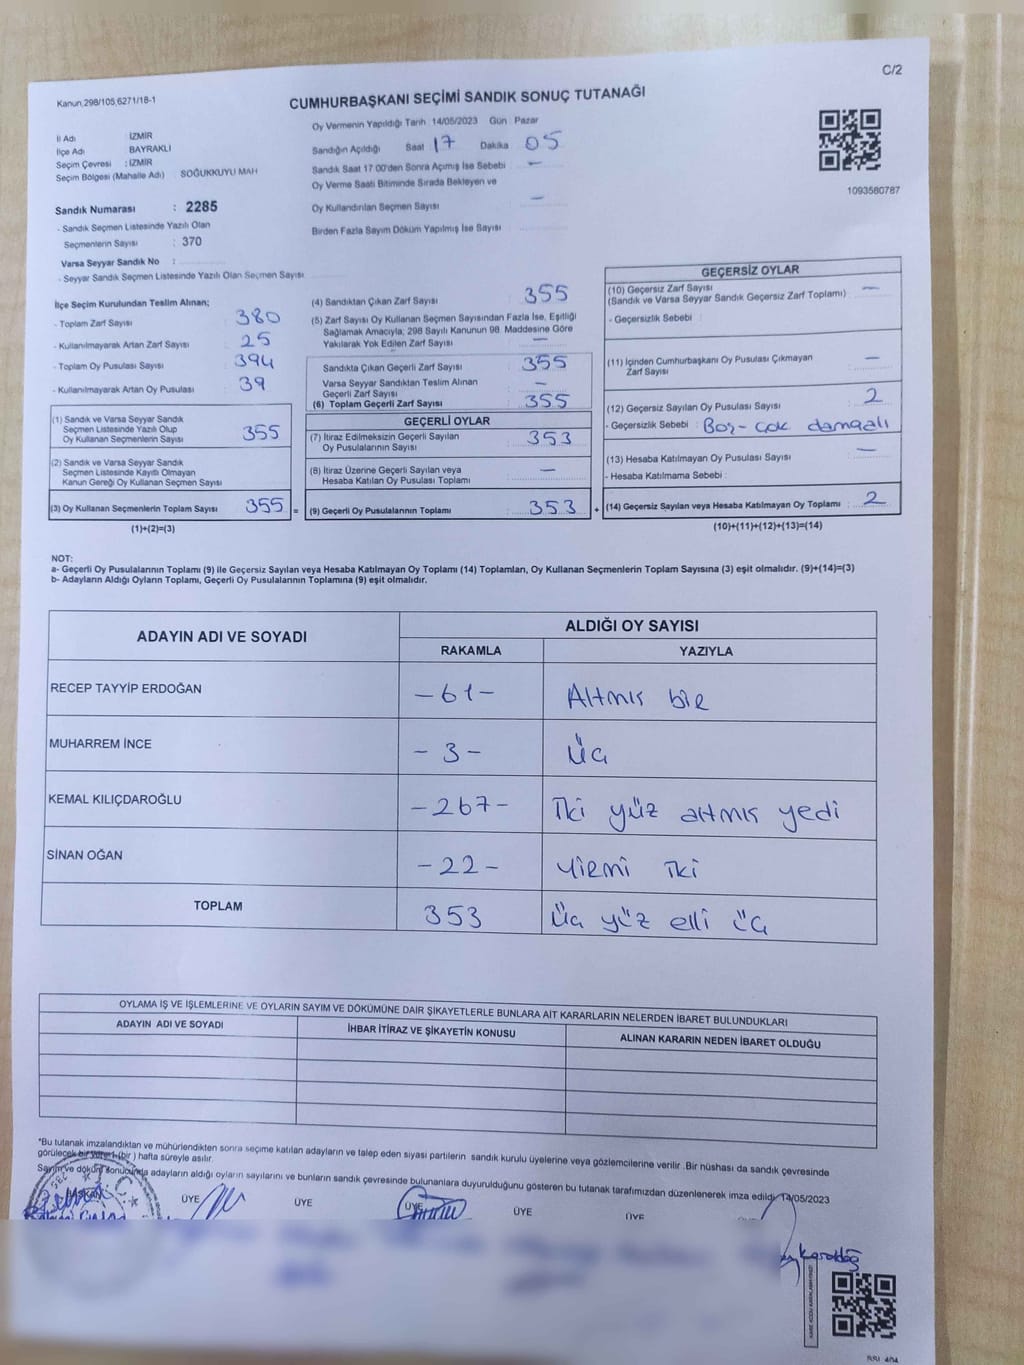 C/2
Kanun,298/105,6271/18-1
CUMHURBAŞKANI SEÇİMİ SANDIK SONUÇ TUTANAĞI
İl Adı İZMİR
İlçe Adı BAYRAKLI
Seçim Çevresi : İZMİR
Seçim Bölgesi (Mahalle Adı) : SOĞUKKUYU MAH
Sandık Numarası : 2285
- Sandık Seçmen Listesinde Yazılı Olan
Seçmenlerin Sayısı : 370
Varsa Seyyar Sandık No :
- Seyyar Sandık Seçmen Listesinde Yazılı Olan Seçmen Sayısı
Oy Vermenin Yapıldığı Tarih : 14/05/2023 Gün : Pazar
Sandığın Açıldığı Saat 17 Dakika 05
Sandık Saat 17 00'den Sonra Açımış İse Sebebi –
Oy Verme Saati Bitiminde Sırada Bekleyen ve
Oy Kullandırılan Seçmen Sayısı –
Birden Fazla Sayım Döküm Yapılmış İse Sayısı
1093580787
İlçe Seçim Kurulundan Teslim Alınan;
- Toplam Zarf Sayısı 380
- Kullanılmayarak Artan Zarf Sayısı 25
- Toplam Oy Pusulası Sayısı 394
- Kullanılmayarak Artan Oy Pusulası 39
(1) Sandık ve Varsa Seyyar Sandık
Seçmen Listesinde Yazılı Olup
Oy Kullanan Seçmenlerin Sayısı 355
(2) Sandık ve Varsa Seyyar Sandık
Seçmen Listesinde Kayıtlı Olmayan
Kanun Gereği Oy Kullanan Seçmen Sayısı
(3) Oy Kullanan Seçmenlerin Toplam Sayısı 355 =
(1)+(2)=(3)
(4) Sandıktan Çıkan Zarf Sayısı : 355
(5) Zarf Sayısı Oy Kullanan Seçmen Sayısından Fazla İse, Eşitliği
Sağlamak Amacıyla; 298 Sayılı Kanunun 98. Maddesine Göre
Yakılarak Yok Edilen Zarf Sayısı –
Sandıkta Çıkan Geçerli Zarf Sayısı : 355
Varsa Seyyar Sandıktan Teslim Alınan
Geçerli Zarf Sayısı –
(6) Toplam Geçerli Zarf Sayısı : 355
GEÇERLİ OYLAR
(7) İtiraz Edilmeksizin Geçerli Sayılan
Oy Pusulalarının Sayısı : 353
(8) İtiraz Üzerine Geçerli Sayılan veya
Hesaba Katılan Oy Pusulası Toplamı –
(9) Geçerli Oy Pusulalarının Toplamı : 353 +
GEÇERSİZ OYLAR
(10) Geçersiz Zarf Sayısı
(Sandık ve Varsa Seyyar Sandık Geçersiz Zarf Toplamı) : –
- Geçersizlik Sebebi :
(11) İçinden Cumhurbaşkanı Oy Pusulası Çıkmayan
Zarf Sayısı –
(12) Geçersiz Sayılan Oy Pusulası Sayısı : 2
- Geçersizlik Sebebi : Boş - çok damgalı
(13) Hesaba Katılmayan Oy Pusulası Sayısı –
- Hesaba Katılmama Sebebi :
(14) Geçersiz Sayılan veya Hesaba Katılmayan Oy Toplamı : 2
(10)+(11)+(12)+(13)=(14)
NOT:
a- Geçerli Oy Pusulalarının Toplamı (9) ile Geçersiz Sayılan veya Hesaba Katılmayan Oy Toplamı (14) Toplamları, Oy Kullanan Seçmenlerin Toplam Sayısına (3) eşit olmalıdır. (9)+(14)=(3)
b- Adayların Aldığı Oyların Toplamı, Geçerli Oy Pusulalarının Toplamına (9) eşit olmalıdır.
ADAYIN ADI VE SOYADI ALDIĞI OY SAYISI
RAKAMLA YAZIYLA
RECEP TAYYİP ERDOĞAN -61- Altmış bir
MUHARREM İNCE -3- Üç
KEMAL KILIÇDAROĞLU -267- İki yüz altmış yedi
SİNAN OĞAN -22- Yirmi iki
TOPLAM 353 Üç yüz elli üç
OYLAMA İŞ VE İŞLEMLERİNE VE OYLARIN SAYIM VE DÖKÜMÜNE DAİR ŞİKAYETLERLE BUNLARA AİT KARARLARIN NELERDEN İBARET BULUNDUKLARI
ADAYIN ADI VE SOYADI İHBAR İTİRAZ VE ŞİKAYETİN KONUSU ALINAN KARARIN NEDEN İBARET OLDUĞU
*Bu tutanak imzalandıktan ve mühürlendikten sonra seçime katılan adayların ve talep eden siyasi partilerin sandık kurulu üyelerine veya gözlemcilerine verilir. Bir nüshası da sandık çevresinde
görülecek bir yere 1 (bir ) hafta süreyle asılır.
Sayım ve döküm sonucunda adayların aldığı oyların sayılarını ve bunların sandık çevresinde bulunanlara duyurulduğunu gösteren bu tutanak tarafımızdan düzenlenerek imza edildi. 14/05/2023
ÜYE ÜYE ÜYE ÜYE ÜYE